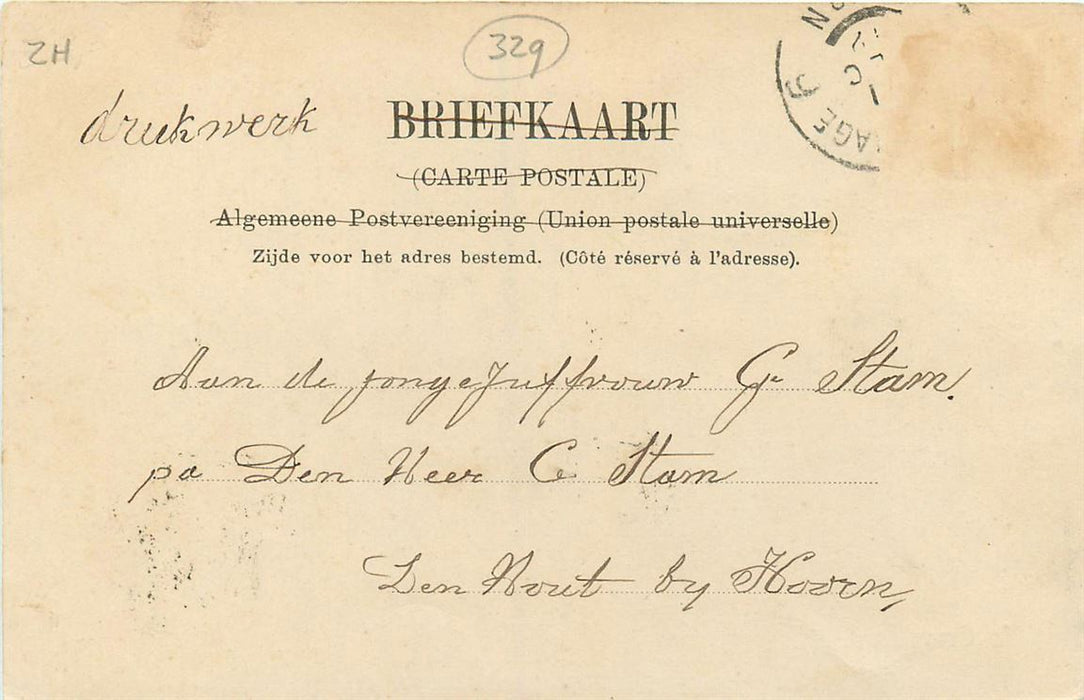 ZH
329
drukwerk
BRIEFKAART
(CARTE POSTALE)
Algemeene Postvereeniging (Union postale universelle)
Zijde voor het adres bestemd. (Côté réservé à l'adresse).
Aan de jongeJuffrouw G Stam.
pa Den Heer C Stam
Den Hout by Hoorn,